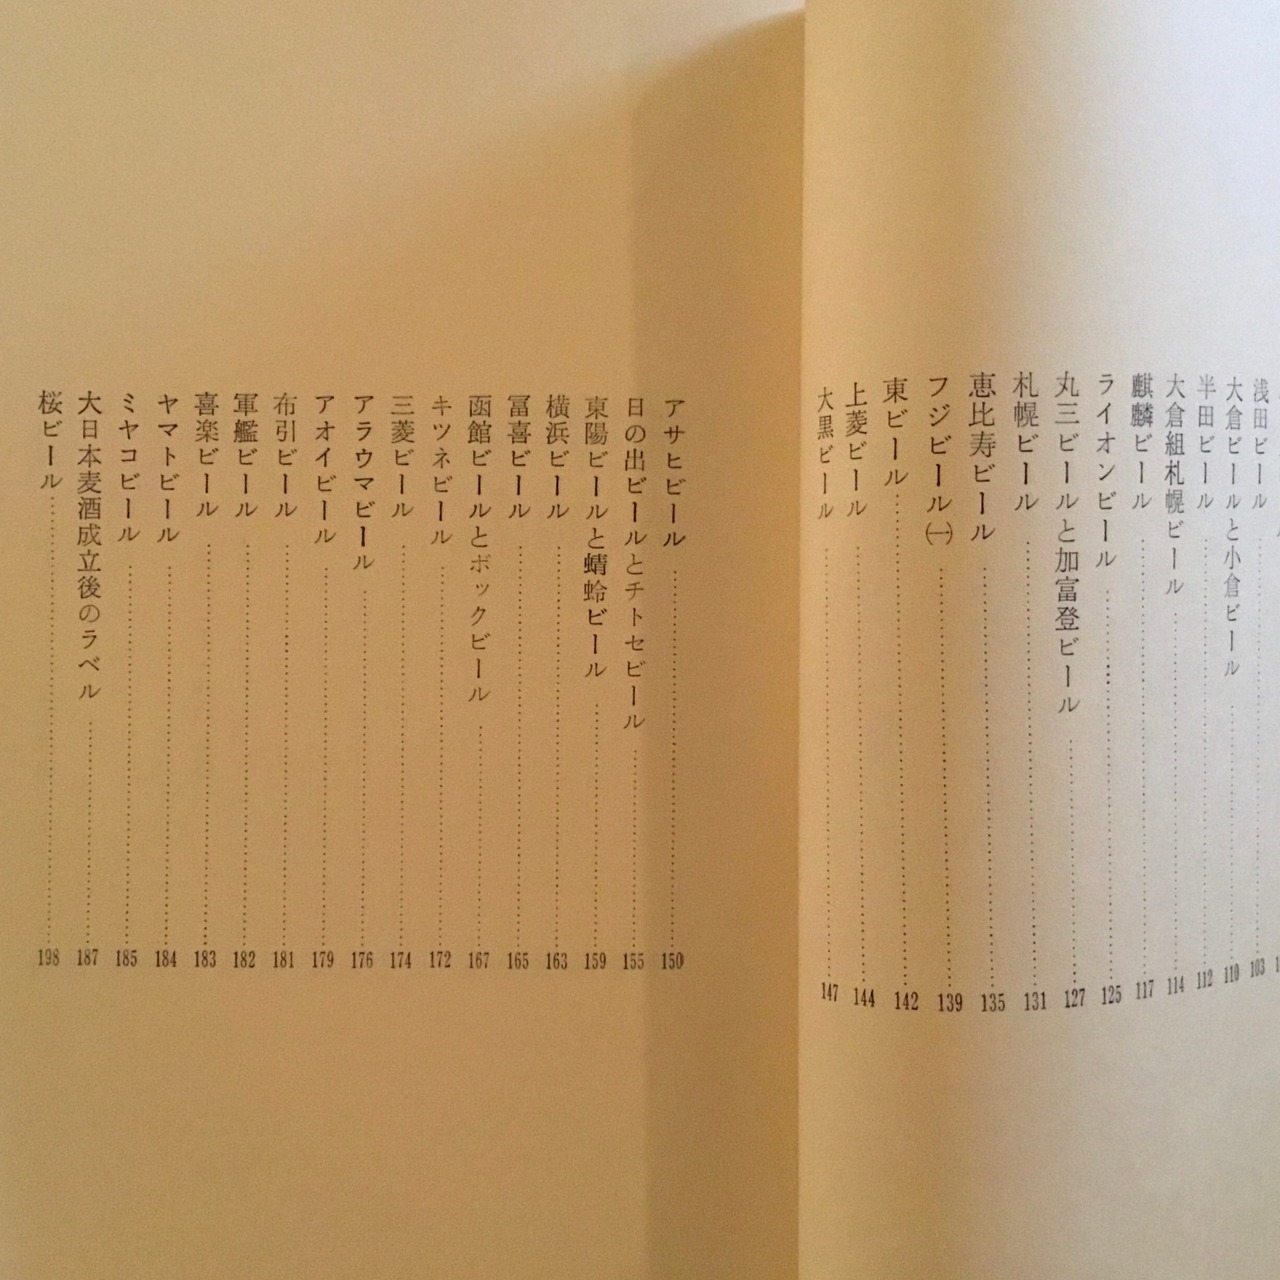 浅田ビール……103
大倉ビールと小倉ビール……110
半田ビール……112
大倉組札幌ビール……114
麒麟ビール……117
ライオンビール……125
丸三ビールと加富登ビール……127
札幌ビール……131
恵比寿ビール……135
フジビール㈠……139
東ビール……142
上菱ビール……144
大黒ビール……147
アサヒビール……150
日の出ビールとチトセビール……155
東陽ビールと蜻蛉ビール……159
横浜ビール……163
冨喜ビール……165
函館ビールとボックビール……167
キツネビール……172
三菱ビール……174
アラウマビール……176
アオイビール……179
布引ビール……181
軍艦ビール……182
喜楽ビール……183
ヤマトビール……184
ミヤコビール……185
大日本麦酒成立後のラベル……187
桜ビール……198